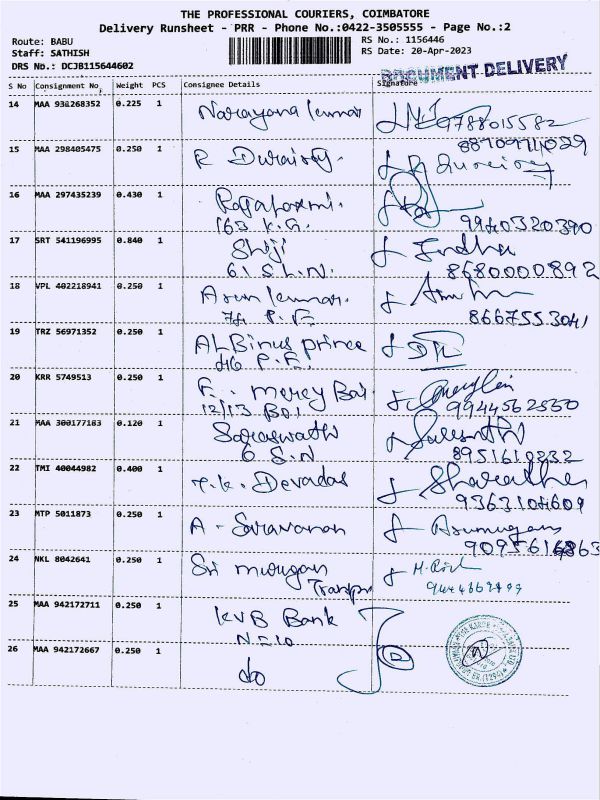 THE PROFESSIONAL COURIERS, COIMBATORE
Delivery Runsheet - PRR - Phone No.:0422-3505555 - Page No.:2
Route: BABU
Staff: SATHISH
DRS No.: DCJB115644602
RS No.: 1156446
RS Date: 20-Apr-2023
DOCUMENT DELIVERY
S No Consignment No. Weight PCS Consignee Details Signature
14 MAA 938268352 0.225 1 Narayana Kumar
9788015582
15 MAA 298405475 0.250 1 R Duraisy.
16 MAA 297435239 0.430 1
163 K.G. 9940320390
17 SRT 541196995 0.840 1 Shiji Indhu
61 S.L.N. 8680000892
18 VPL 402218941 0.250 1 Arun Kumar.
74 P.F. 8667553041
19 TRZ 56971352 0.250 1 ALBinus prince
46 P.F.
20 KRR 5749513 0.250 1 F.. mercy Bai
12/13 B.O.1 9944562550
21 MAA 300177183 0.120 1 Saraswathi
6 S.N 8951610232
22 TMI 40044982 0.400 1 T.K. Devadas Sharatha
9363104609
23 MTP 5011873 0.250 1 A - Saravanan Arumugam
24 NKL 8042641 0.250 1 Sri murugan
25 MAA 942172711 0.250 1 KVB Bank
26 MAA 942172667 0.250 1 do